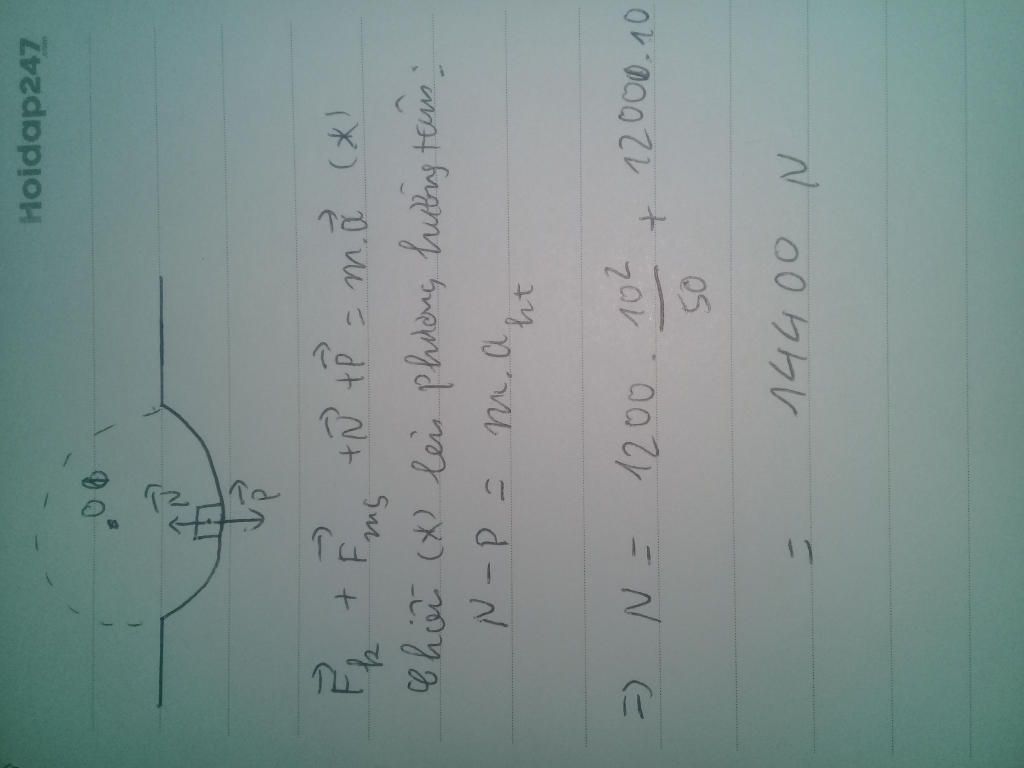 Hoidap247
.com
O
N⃗
P⃗
F⃗k + F⃗ms + N⃗ + P⃗ = m.a⃗ (x)
Chiếu (x) lên phương hướng tâm:
N - P = m.a ht
=> N = 1200 . 10²/50 + 12000.10
= 14400 N